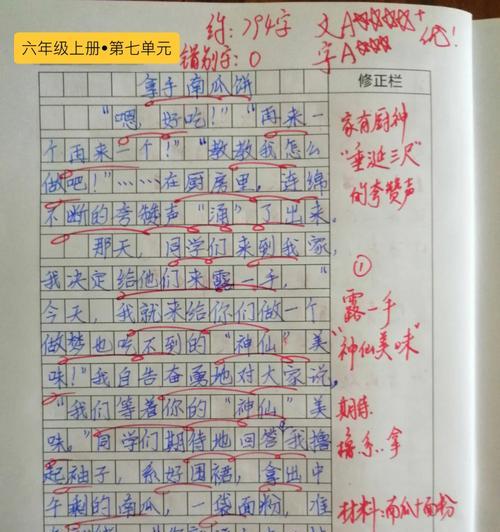 六年级上册•第七单元
约:794字 文A☆☆☆☆+
错别字:0 字A☆☆☆ 优!
拿手南瓜饼
修正栏
“嗯,好吃!”“再来一
个再来一个!”“教教我怎么
做吧!”……在厨房里,连绵
不断的夸赞声“涌”了出来。
那天,同学们来到我家,
我决定给他们来露一手,“
今天,我就来给你们做一个
做梦也吃不到的“神仙”美
味!”我自告奋勇地对大家说。
“我们等着你的“神仙”美
味。”同学们期待地回答我撸
起袖子,系好围裙,拿出中
午剩的南瓜,一袋面粉,准
家有厨神
“垂涎三尺”
的夸赞声
①
露一手
“神仙美味”
期待
撸系拿
材料:南瓜+面粉